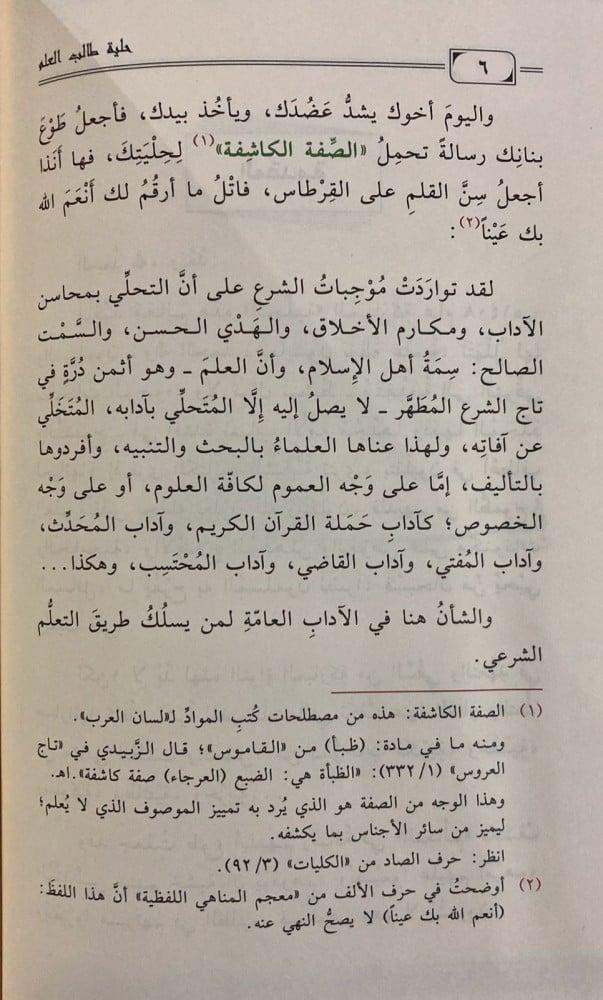 حلية طالب العلم
٦
واليومَ أخوك يشدُّ عَضُدَك، ويأخُذ بيدك، فأجعلُ طَوْعَ
بنانِك رسالةً تحمِلُ «الصِّفة الكاشِفة»(١) لِحِلْيَتِكَ، فها أنَذا
أجعلُ سِنَّ القلمِ على القِرْطاس، فاتْلُ ما أرقُمُ لك أَنْعَمَ الله
بك عَيْناً(٢):
لقد توارَدَتْ مُوْجِباتُ الشرعِ على أنَّ التحلِّي بمحاسن
الآداب، ومكارم الأخلاق، والهَدْي الحسن، والسَّمْت
الصالح: سِمَةُ أهل الإسلام، وأنَّ العلمَ ـ وهو أثمن دُرَّةٍ في
تاج الشرع المُطَهَّر ـ لا يصلُ إليه إلَّا المُتَحلِّي بآدابه، المُتَخَلِّي
عن آفاتِه، ولهذا عناها العلماءُ بالبحث والتنبيه، وأفردوها
بالتأليف، إمَّا على وَجْه العموم لكافّة العلوم، أو على وَجْه
الخصوص؛ كآدابِ حَمَلة القرآن الكريم، وآداب المُحَدِّث،
وآداب المُفتي، وآداب القاضي، وآداب المُحْتَسِب، وهكذا...
والشأنُ هنا في الآدابِ العامّةِ لمن يسلُكُ طريقَ التعلُّم
الشرعي.
(١) الصفة الكاشفة: هذه من مصطلحات كُتبِ الموادِّ لـ«لسان العرب».
ومنه ما في مادة: (ظبأ) من «القاموس»؛ قال الزَّبيدي في «تاج
العروس» (١/ ٣٣٢): «الظبأة هي: الضبع (العرجاء) صفة كاشفة».اهـ.
وهذا الوجه من الصفة هو الذي يُرد به تمييز الموصوف الذي لا يُعلم؛
ليميز من سائر الأجناس بما يكشفه.
انظر: حرف الصاد من «الكليات» (٣/ ٩٢).
(٢) أوضحتُ في حرف الألف من «معجم المناهي اللفظية» أنَّ هذا اللفظَ:
(أنعم الله بك عيناً) لا يصحُّ النهي عنه.